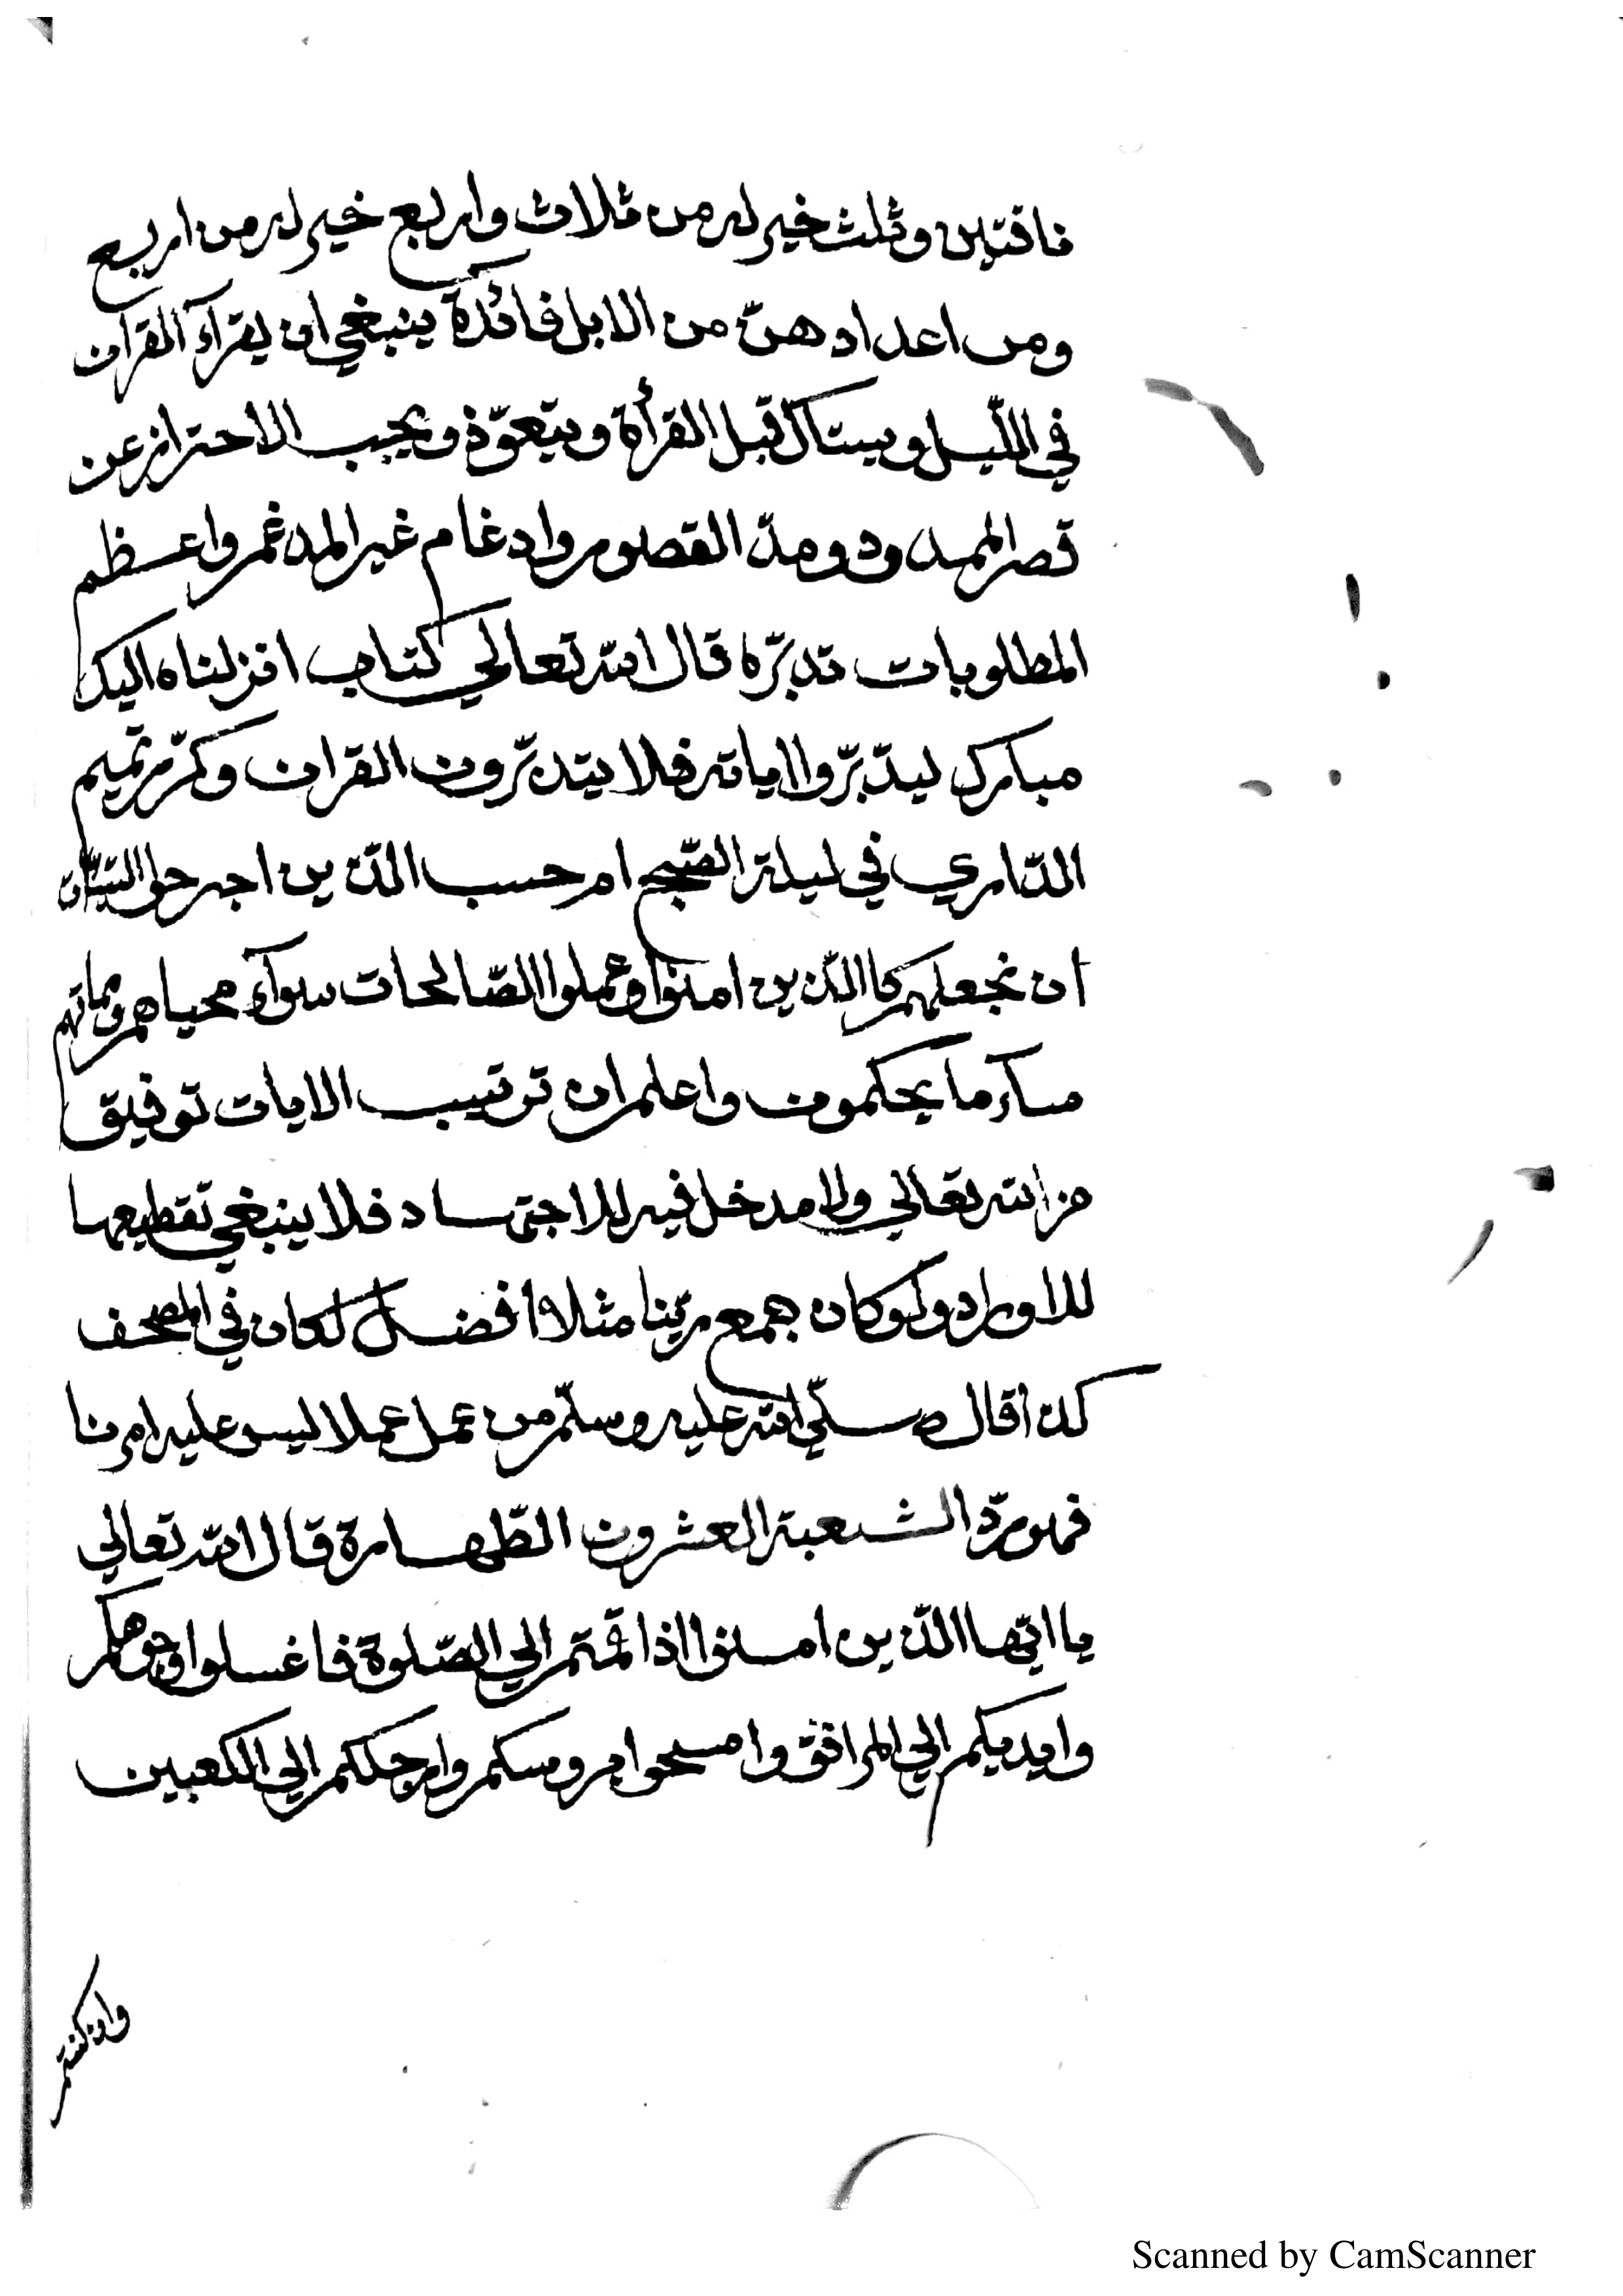 ناقتين وثلث خير له من ثلاث واربع خير له من اربع
ومن اعدادهنّ من الابل فائدة ينبغي ان يقرآء القرآن
في اللّيل ويستاك قبل القرأة ويتعوّذ ويجب الاحتراز عن
قصر الممدود ومدّ القصور وادغام غير المدغم واعظم
المطلوبات تدبرّه قال الله تعالي كتاب انزلناه اليك
مبارك ليدّبرّوا اياته فلا يتدبرّون القران وكرّر تميم
الدّاري في ليلة الصّبح ام حسب الذّين اجترحوا السّيّات
ان نجعلهم كاالذّين امنوا وعملوا الصّالحات سوآء محياهم ومماتهم
سآء ما يحكمون واعلم ان ترتيب الايات توفيق
من الله تعالي ولا مدخل فيه للاجتهاد فلا ينبغي تقطيعها
للاوراد ولوكان جمع ربّنا مثلا افضل لكان في المصحف
كذا قال صلّي الله عليه وسلّم من عمل عملا ليس عليه امرنا
فهو ردّ الشعبة العشرون الطّهارة قال الله تعالي
يا ايّها الذّين امنوا اذا قمتم الي الصّلوة فاغسلوا وجوهكم
وايديكم الي المرافق وامسحوا بروسكم وارجلكم الي الكعبين
وان كنتم
Scanned by CamScanner